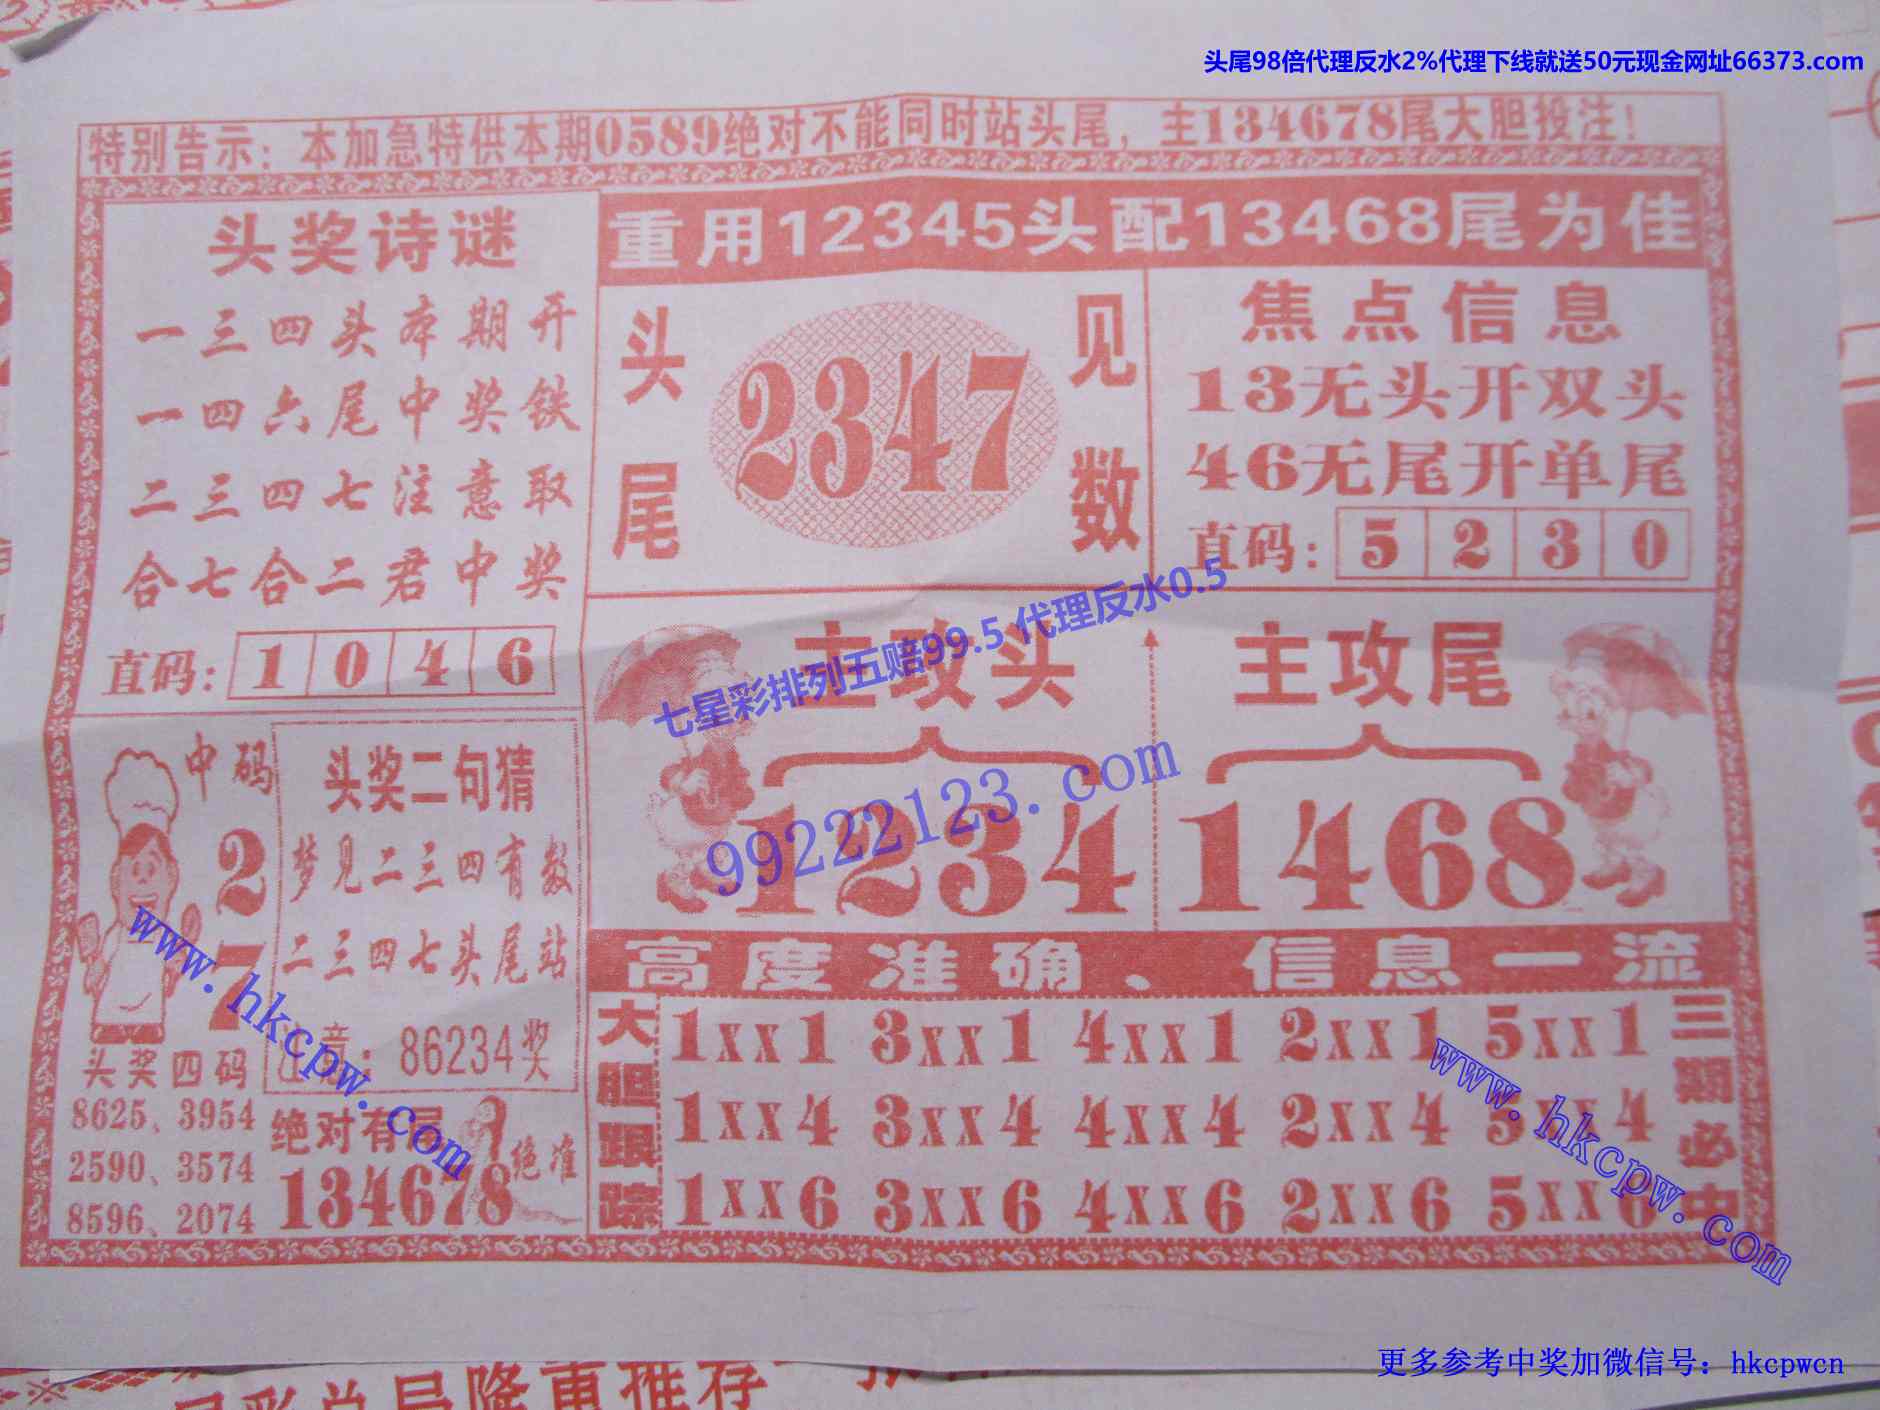 头尾98倍代理反水2%代理下线就送50元现金网址66373.com
特别告示：本加急特供本期0589绝对不能同时站头尾，主134678尾大胆投注！
头奖诗谜
一三四头本期开
一四六尾中奖铁
二三四七注意取
合七合二君中奖
直码：1 0 4 6
重用12345头配13468尾为佳
头尾
2347
见数
焦点信息
13无头开双头
46无尾开单尾
直码：5 2 3 0
七星彩排列五赔99.5 代理反水0.5
99222123.com
主攻头
1234
主攻尾
1468
中码
2
7
头奖四码
8625、3954
2590、3574
8596、2074
头奖二句猜
梦见二三四有数
二三四七头尾站
意：86234奖
绝对有尾
134678
绝准
www.hkcpw.com
高度准确、信息一流
大胆跟踪
1xx1 3xx1 4xx1 2xx1 5xx1
1xx4 3xx4 4xx4 2xx4 5xx4
1xx6 3xx6 4xx6 2xx6 5xx6
三期必中
www.hkcpw.com
更多参考中奖加微信号：hkcpwcn
隆重推荐